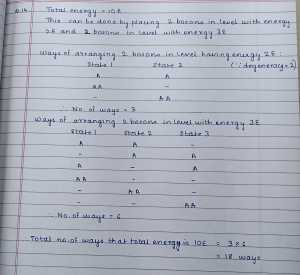 Total energy = 10E
This can be done by placing 2 bosons in level with energy
2E and 2 bosons in level with energy 3E
Ways of arranging 2 bosons in level having energy 2E :
State 1 State 2 (∵ degeneracy = 2)
A A
AA -
- AA
∴ No. of ways = 3
Ways of arranging 2 bosons in level with energy 3E
State 1 State 2 State 3
A A -
- A A
A - A
AA - -
- AA -
- - AA
∴ No. of ways = 6
Total no. of ways that total energy is 10E = 3 × 6
= 18 ways